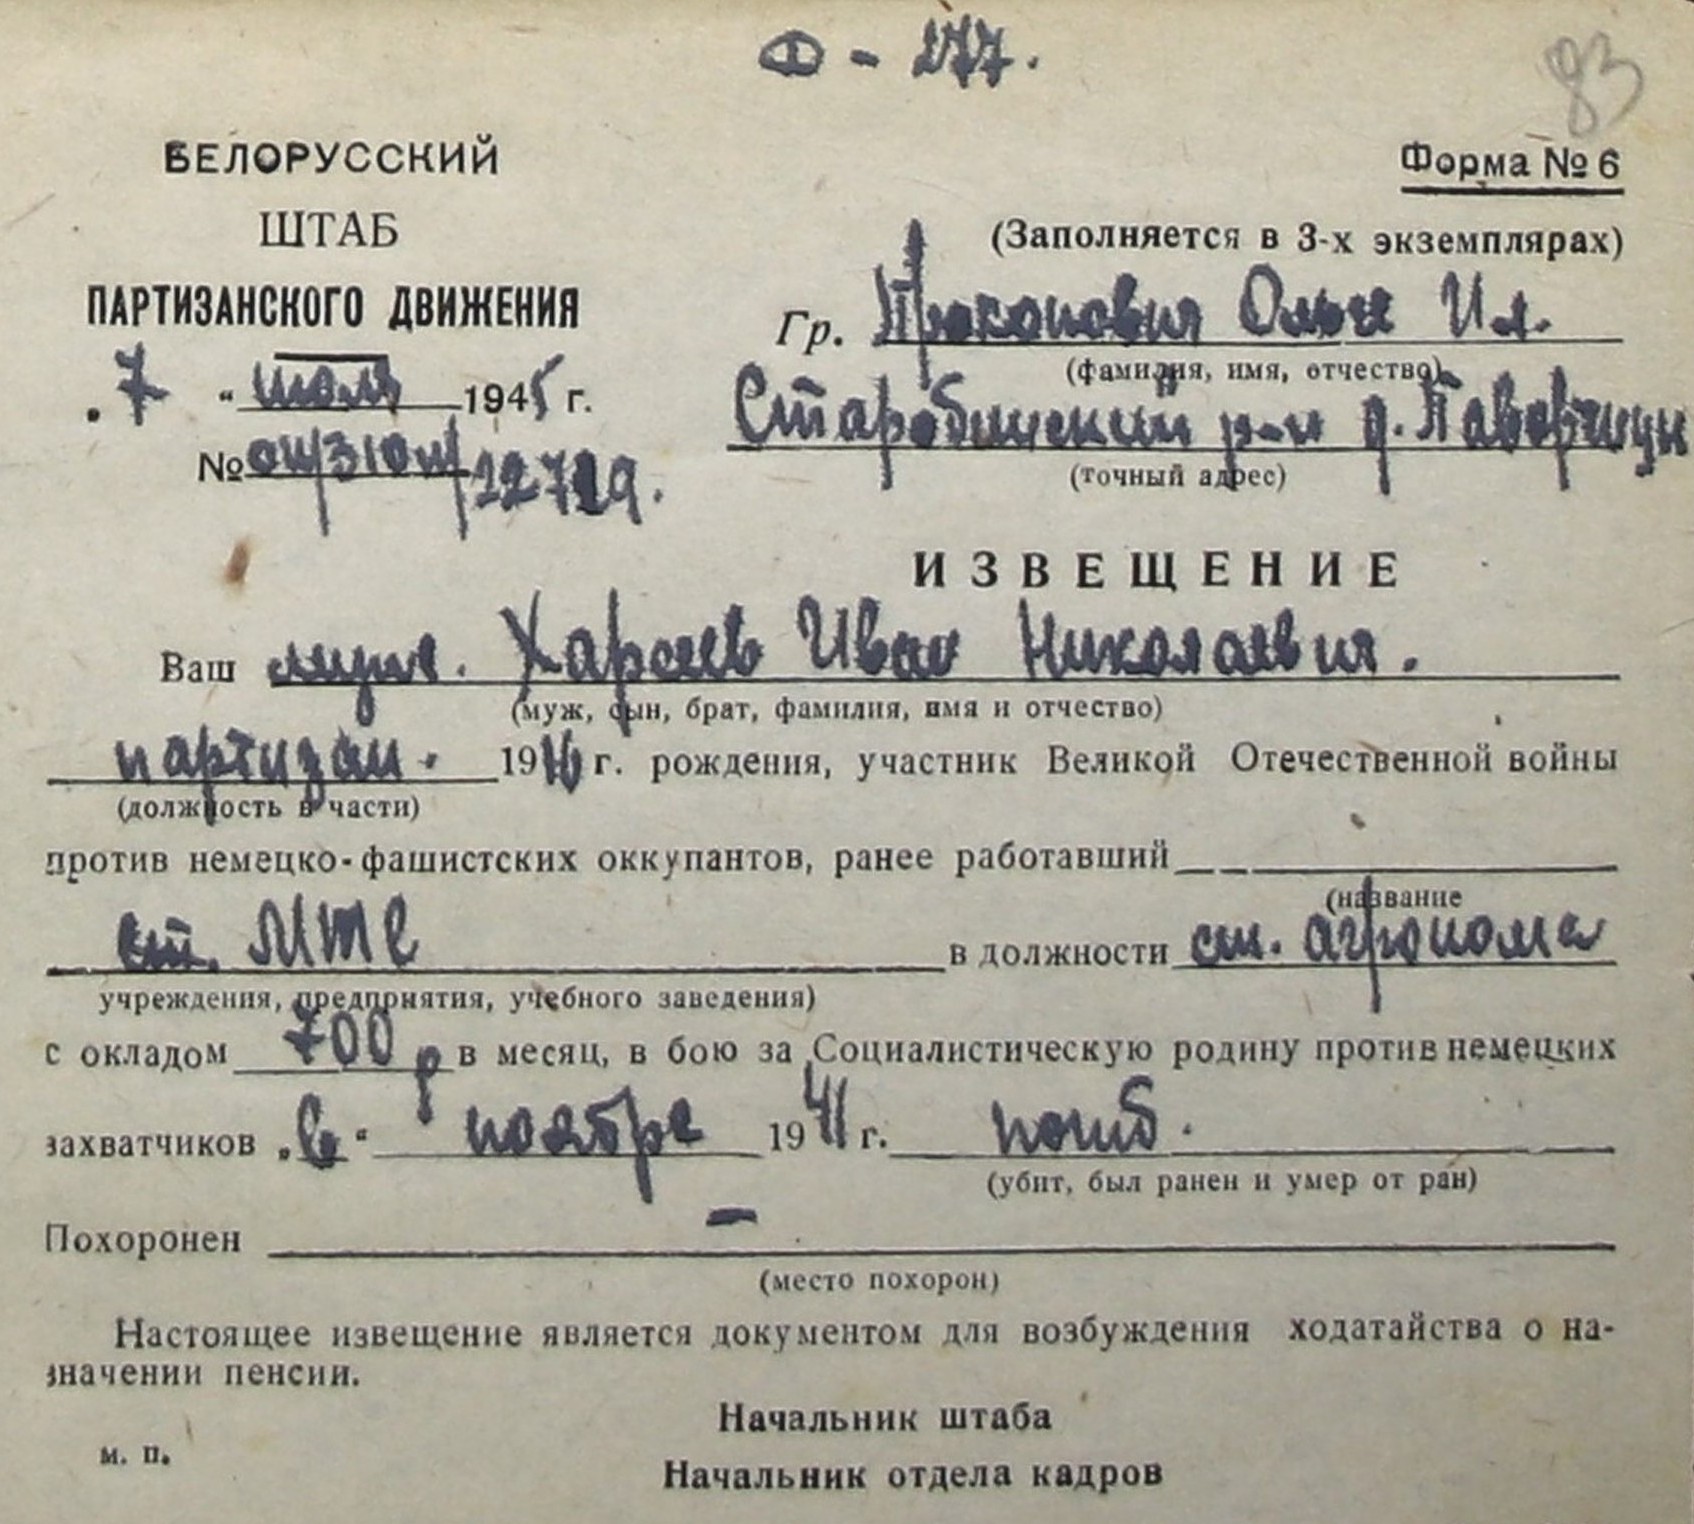 Ф - 277.
93
БЕЛОРУССКИЙ
ШТАБ
ПАРТИЗАНСКОГО ДВИЖЕНИЯ
„7“ июля 1945 г.
Форма № 6
(Заполняется в 3-х экземплярах)
Гр. Прокопович Ольге Ил.
(фамилия, имя, отчество)
Старобинский р-н д.
(точный адрес)
ИЗВЕЩЕНИЕ
Ваш муж. Харсеев Иван Николаевич.
(муж, сын, брат, фамилия, имя и отчество)
партизан. 1916 г. рождения, участник Великой Отечественной войны
(должность в части)
против немецко-фашистских оккупантов, ранее работавший
(название
ст. МТС в должности ст. агронома
учреждения, предприятия, учебного заведения)
с окладом 700 р в месяц, в бою за Социалистическую родину против немецких
захватчиков „в“ ноябре 1941 г. погиб.
(убит, был ранен и умер от ран)
Похоронен —
(место похорон)
Настоящее извещение является документом для возбуждения ходатайства о на-
значении пенсии.
Начальник штаба
м. п.
Начальник отдела кадров